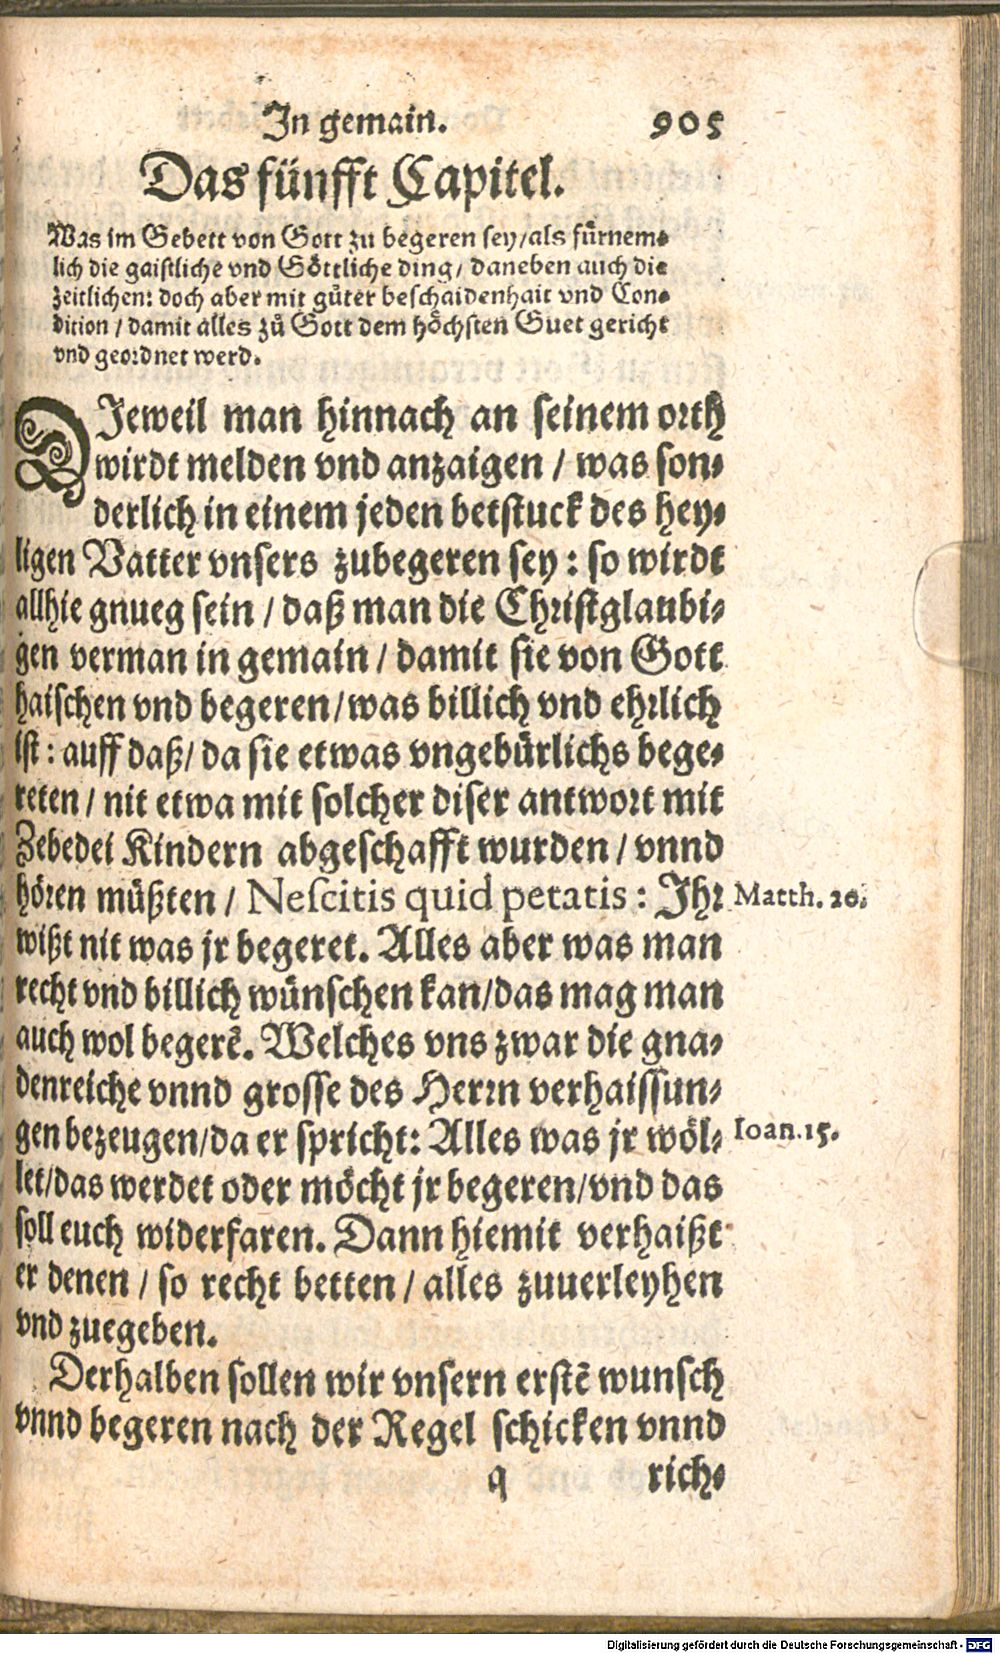 In gemain. 905
Das fünfft Capitel.
Was im Gebett von Gott zu begeren sey/als fürnem⸗
lich die gaistliche vnd Göttliche ding/ daneben auch die
zeitlichen: doch aber mit gůter beschaidenhait vnd Con⸗
dition / damit alles zů Gott dem höchsten Guet gericht
vnd geordnet werd.
DIeweil man hinnach an seinem orth
wirdt melden vnd anzaigen / was son⸗
derlich in einem jeden betstuck des hey⸗
ligen Vatter vnsers zubegeren sey : so wirdt
allhie gnueg sein / daß man die Christglaubi⸗
gen verman in gemain / damit sie von Gott
haischen vnd begeren/was billich vnd ehrlich
ist : auff daß/ da sie etwas vngebürlichs bege⸗
reten / nit etwa mit solcher diser antwort mit
Zebedei Kindern abgeschafft wurden / vnnd
hören müßten / Nescitis quid petatis : Ihr Matth. 20.
wißt nit was jr begeret. Alles aber was man
recht vnd billich wünschen kan/das mag man
auch wol begerē. Welches vns zwar die gna⸗
denreiche vnnd grosse des Herrn verhaissun⸗
gen bezeugen/da er spricht: Alles was jr wöl⸗ Ioan.15.
let/das werdet oder möcht jr begeren/vnd das
soll euch widerfaren. Dann hiemit verhaißt
er denen / so recht betten / alles zuuerleyhen
vnd zuegeben.
Derhalben sollen wir vnsern erstē wunsch
vnnd begeren nach der Regel schicken vnnd
q rich⸗
Digitalisierung gefördert durch die Deutsche Forschungsgemeinschaft - DFG